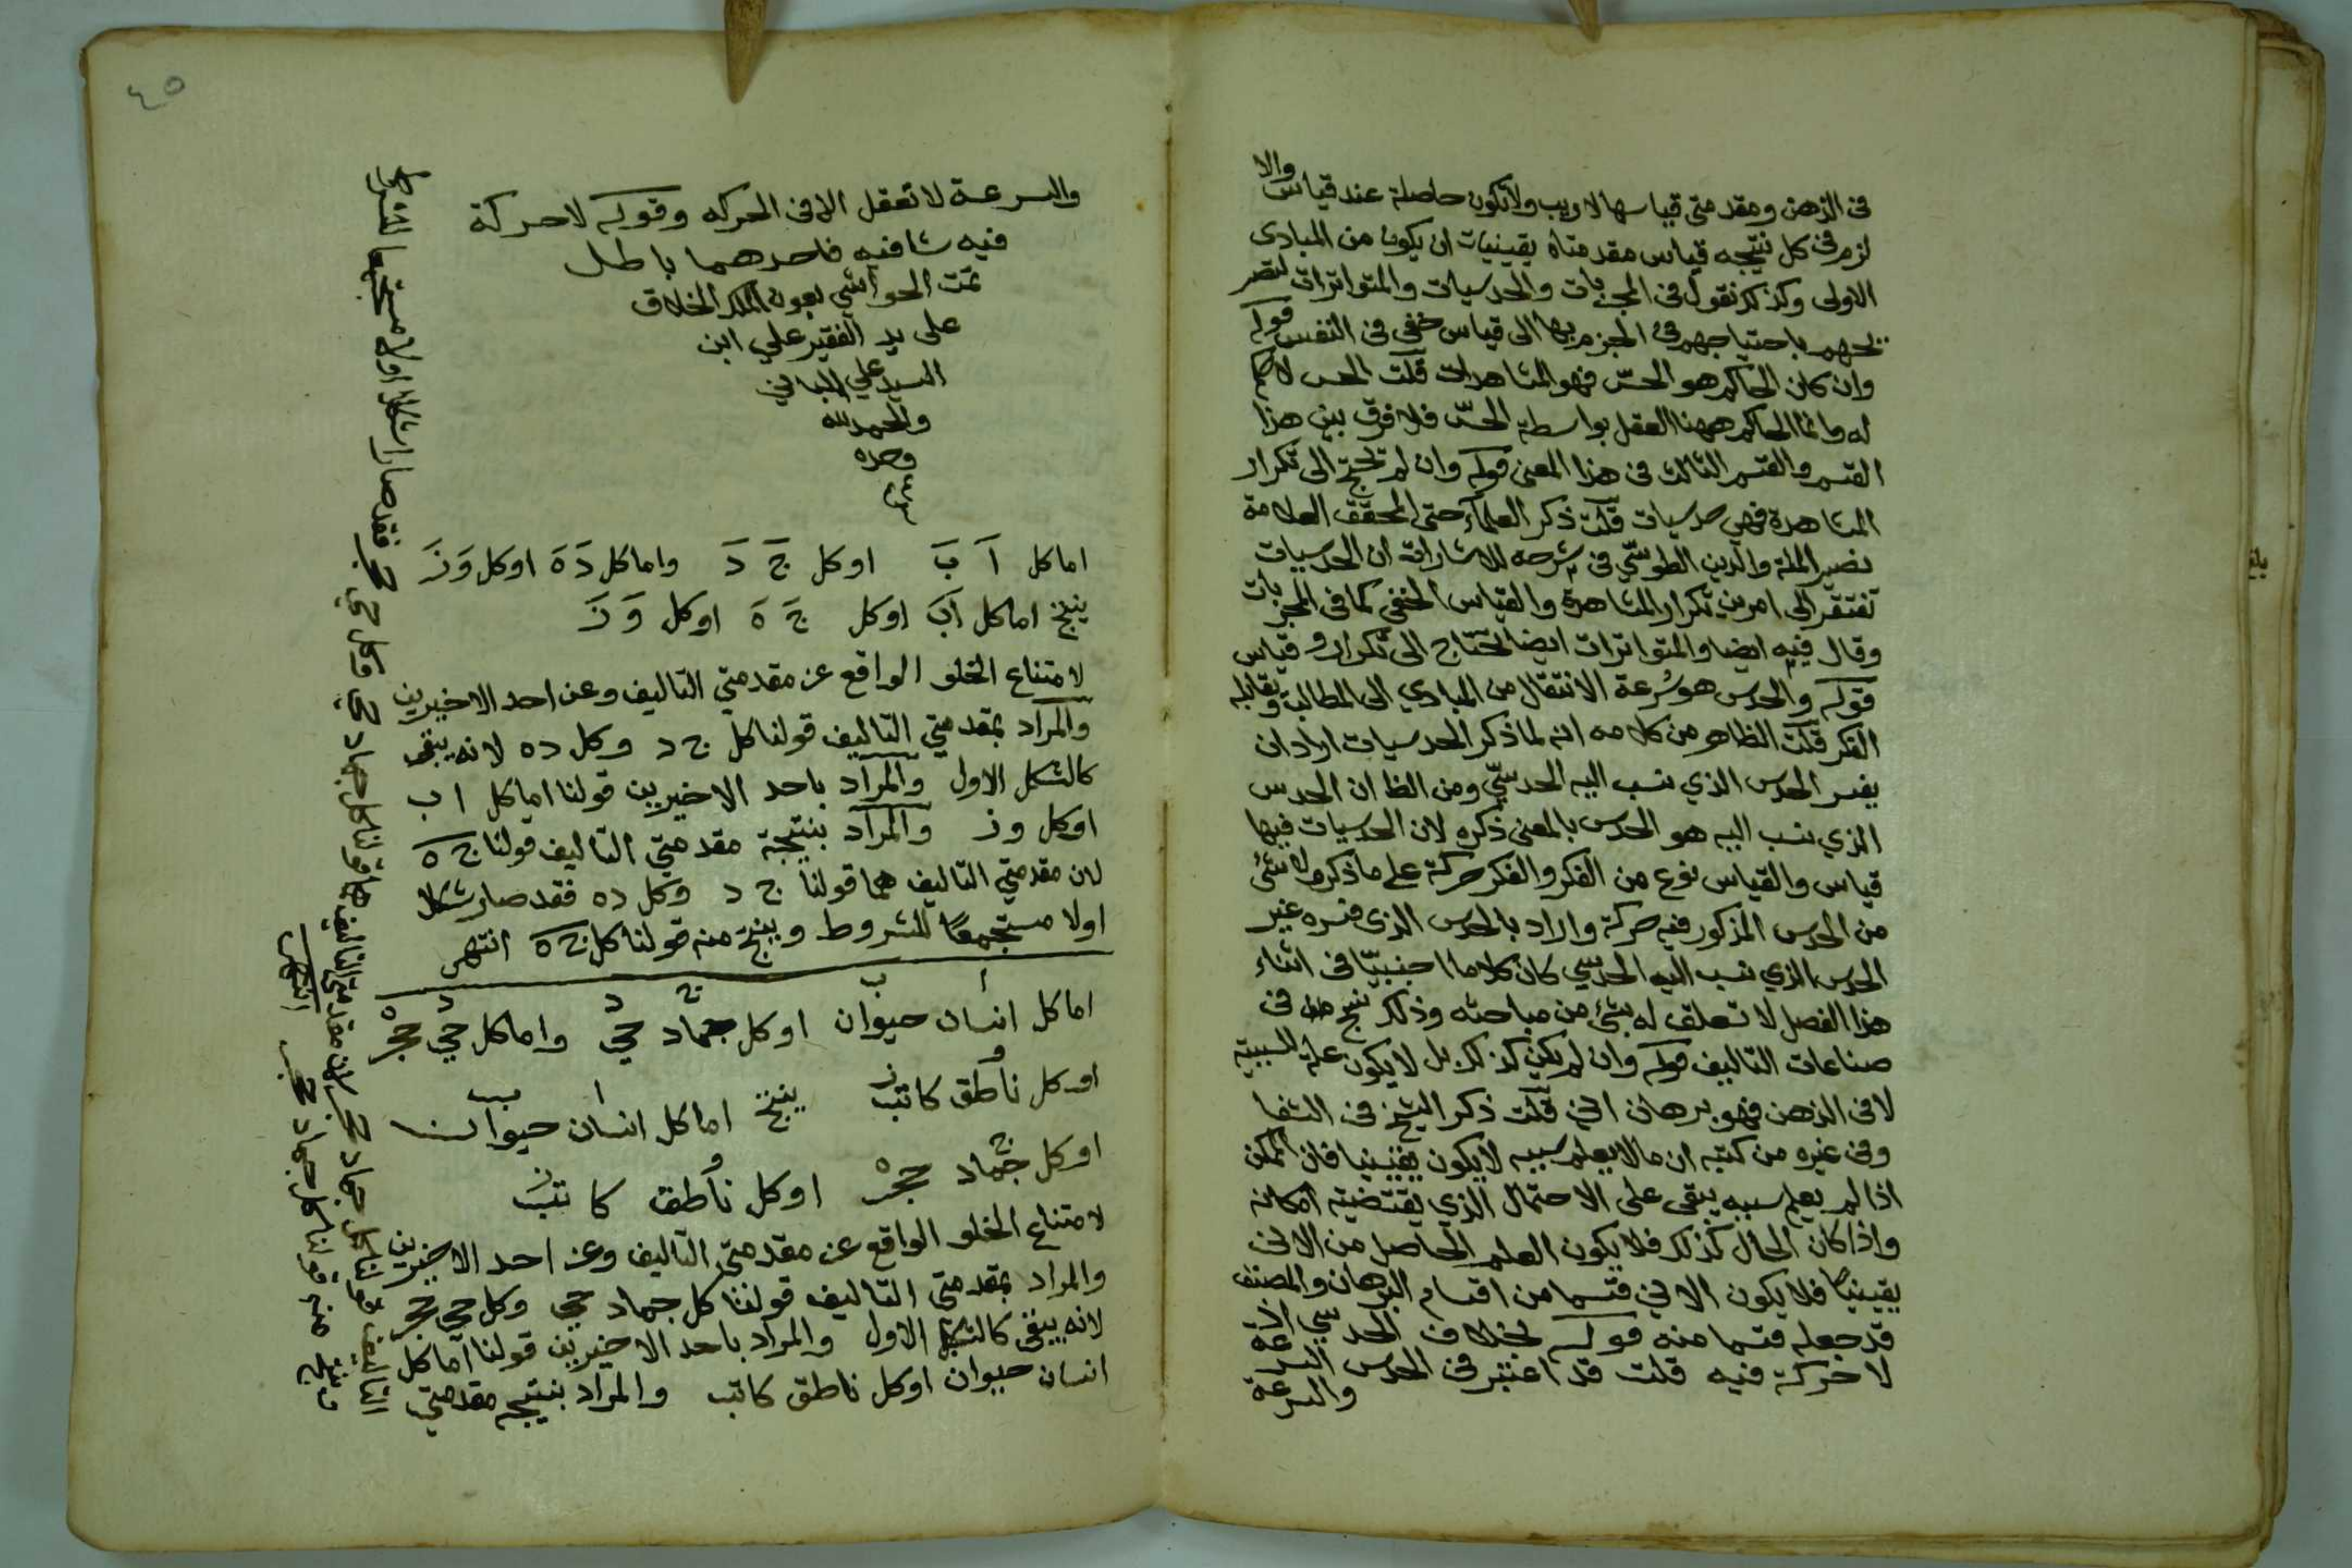 في الذهن ومقدمتي قياسها لاريب ولا يكون حاصلة عند قياس والا
لزم في كل نتيجه قياس مقدمتاه يقينيات ان يكون من المبادى
الاولى وكذلك نقول في المجربات والحدسيات والمتواترات
باحتياجهم في الجزم بها الى قياس خفي في النفس قوله
وان كان الحاكم هو الحسّ فهو المشاهدات قلت الحس لا حكم
له وانما الحاكم ههنا العقل بواسطة الحسّ فلا فرق بين هذا
القسم والقسم الثالث في هذا المعنى قوله وان لم تحتج الى تكرار
المشاهدة فهي حدسيات قلت ذكر العلماء حتى المحقق العلامة
نصير الملة والدين الطوسي في شرحه للاشارات ان الحدسيات
تفتقر الى امرين تكرار المشاهدة والقياس الخفي كما في المجربات
وقال فيه ايضا والمتواترات ايضا تحتاج الى تكرار و قياس
قوله والحدس هو سرعة الانتقال من المبادي الى المطالب ويقابله
الفكر قلت الظاهر من كلامه انه لما ذكر الحدسيات اراد ان
يفسر الحدس الذي نسب اليه الحدسيّ ومن الظا ان الحدس
الذي نسب اليه هو الحدس بالمعنى ذكره لان الحدسيات فيها
قياس والقياس نوع من الفكر والفكر حركة على ما ذكره ولا شئ
من الحدس المذكور فيه حركة واراد بالحدس الذى فسره غير
الحدس الذي نسب اليه الحدسي كان كلاما اجنبيّا في اثناء
هذا الفصل لا تعلق له بشئ من مباحثه وذلك في
صناعات التاليف قوله وان لم يكن كذلك بل لا يكون علة للنسبة
لا في الذهن فهو برهان اني قلت ذكر الشيخ في الشفا
وفي غيره من كتبه ان ما لا يعلم سببه لا يكون يقينيا فان الممكن
اذا لم يعلم سببه يبقى على الاحتمال الذي يقتضيه امكانه
واذا كان الحال كذلك فلا يكون العلم الحاصل من الاني
يقينيا فلا يكون الاني قسما من اقسام البرهان والمصنف
قد جعله قسما منه قوله بخلاف الحدسي اذ
لا حركة فيه قلت قد اعتبر في الحدس السرعة
والسرعة
٤٥
والسرعة لا تعقل الا في الحركه وقوله لا حركة
فيه ينافيه فاحدهما باطل
تمت الحواشي بعون الملك الخلاق
على يد الفقير علي ابن
السيد علي
والحمد لله
وحده
اما كل آ بَ اوكل جَ دَ واما كل دَ هَ اوكل وَ زَ
ينتج اما كل اَبَ اوكل جَ هَ اوكل وَ زَ
لامتناع الخلو الواقع عن مقدمتي التاليف وعن احد الاخيرين
والمراد بمقدمتي التاليف قولنا كل ج د وكل د ه لانه ينتج
كالشكل الاول والمراد باحد الاخيرين قولنا اما كل ا ب
اوكل و ز والمراد بنتيجة مقدمتي التاليف قولنا ج ه
لان مقدمتي التاليف هما قولنا ج د وكل د ه فقد صار شكلا
اولا مستجمعًا للشروط وينتج منه قولنا كل ج ه انتهى
ا ب ج د د ه
اما كل انسان حيوان اوكل جماد حي واما كل حي حجر
و ز ا ب
اوكل ناطق كاتب ينتج اما كل انسان حيوان
ج ه و ز
اوكل جماد حجر اوكل ناطق كاتب
لامتناع الخلو الواقع عن مقدمتي التاليف وعن احد الاخيرين
والمراد بمقدمتي التاليف قولنا كل جماد حي وكل حي حجر
لانه ينتج كالشكل الاول والمراد باحد الاخيرين قولنا اما كل
انسان حيوان اوكل ناطق كاتب والمراد بنتيجه مقدمتي
التاليف قولنا كل جماد حجر لان مقدمتي التاليف هما قولنا كل جماد حي وكل حي حجر فقد صارا شكلا اولا مستجمعا للشروط
فانتج منه قولنا كل جماد حجر انتهى